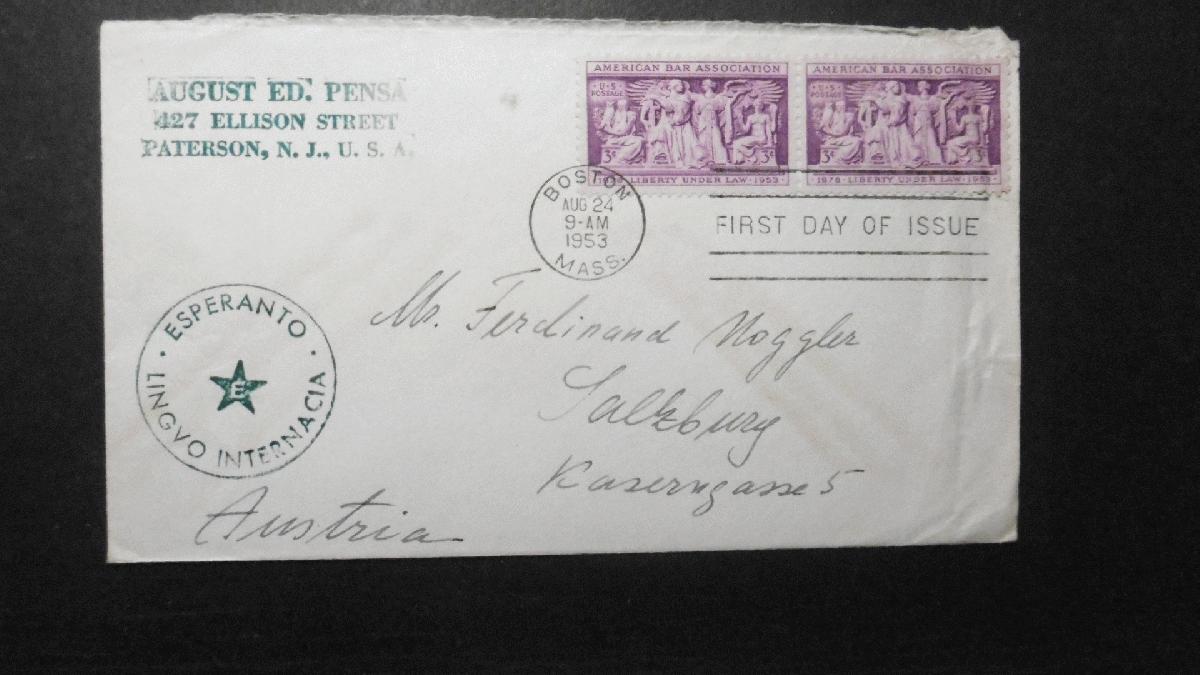 AUGUST ED. PENSA
427 ELLISON STREET
PATERSON, N. J., U. S. A.
AMERICAN BAR ASSOCIATION
U·S·
POSTAGE
3¢ 3¢
LIBERTY UNDER LAW · 1953
AMERICAN BAR ASSOCIATION
U·S·
POSTAGE
3¢ 3¢
1878 · LIBERTY UNDER LAW · 1953
BOSTON
AUG 24
9-AM
1953
MASS.
FIRST DAY OF ISSUE
· ESPERANTO ·
E
LINGVO INTERNACIA
Mr. Ferdinand Noggler
Salzburg
Kaserngasse 5
Austria